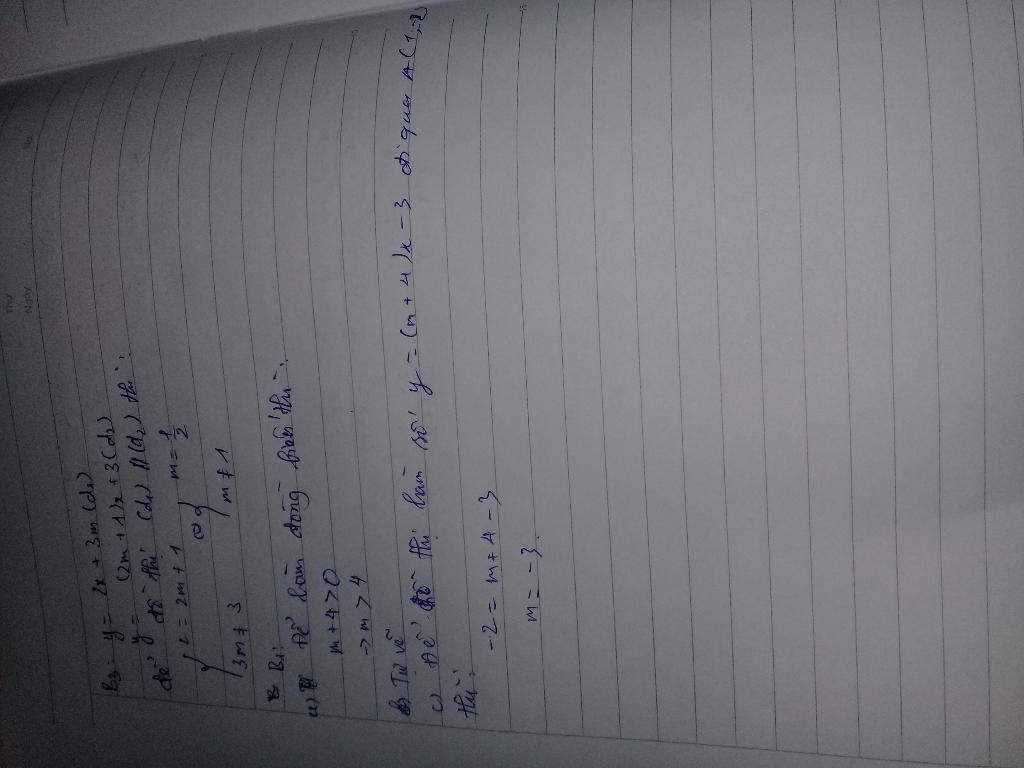 B3: y = 2x + 3m (d1)
y = (2m + 1)x + 3 (d2)
để đồ thị (d1) // (d2) thì:
{ 2 = 2m + 1
3m ≠ 3
<=> { m = 1/2
m ≠ 1
B1:
a) Để hàm đồng biến thì:
m + 4 > 0
-> m > 4
b) Tự vẽ
c) Để đồ thị hàm số y = (m + 4)x - 3 đi qua A(1,-2)
thì:
-2 = m + 4 - 3
m = -3.